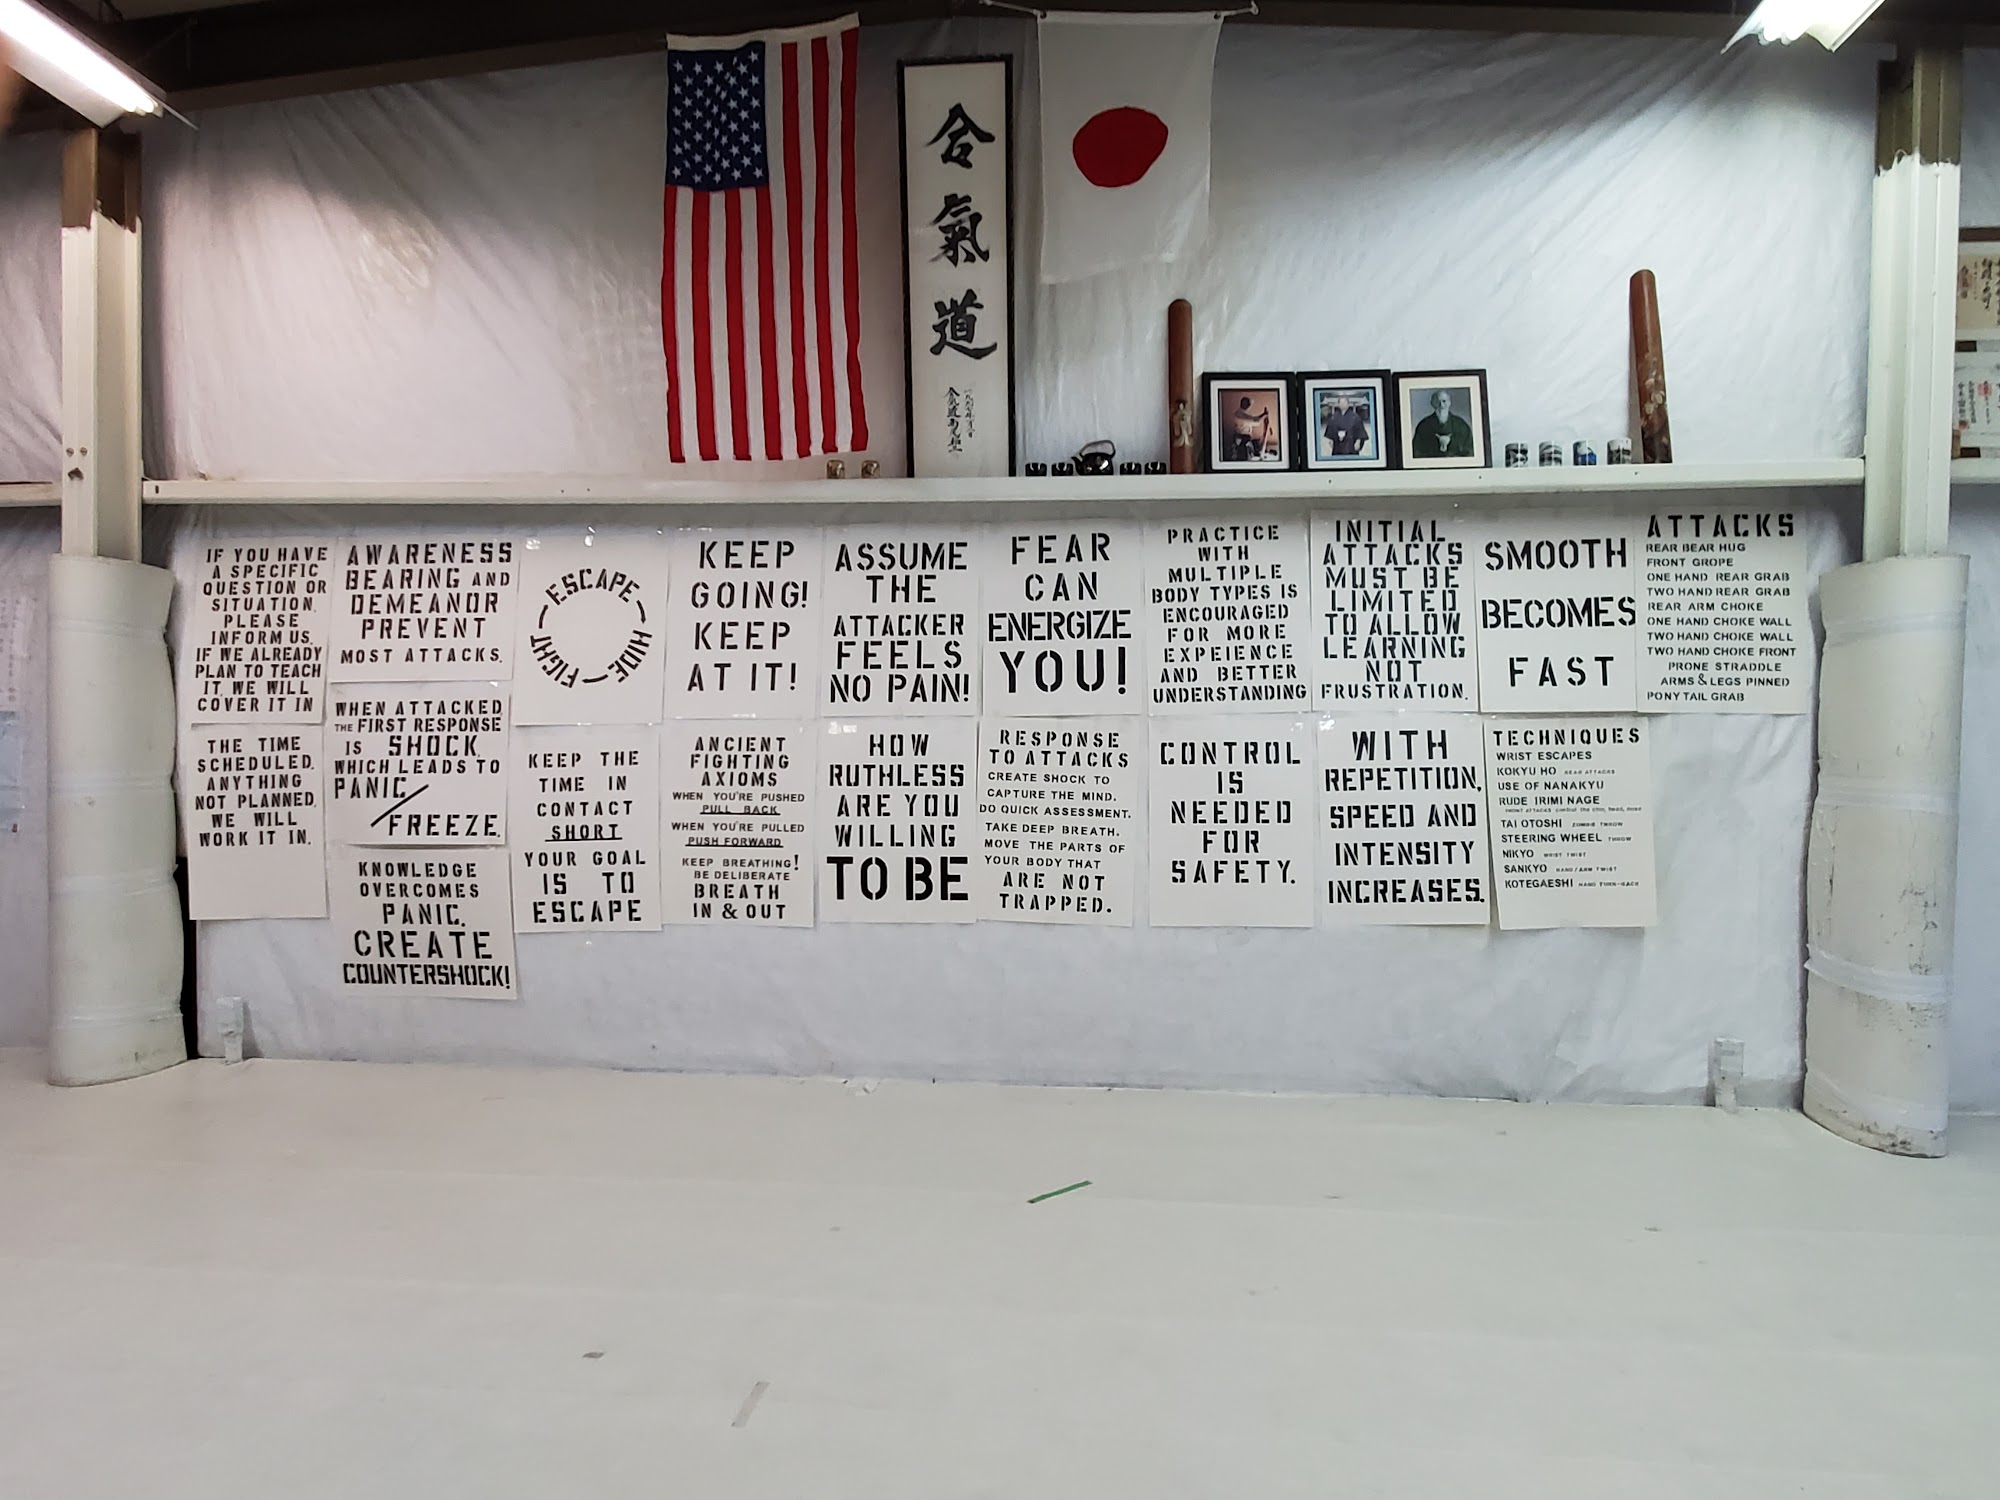 合
氣
道
IF YOU HAVE
A SPECIFIC
QUESTION OR
SITUATION,
PLEASE
INFORM US.
IF WE ALREADY
PLAN TO TEACH
IT, WE WILL
COVER IT IN
THE TIME
SCHEDULED.
ANYTHING
NOT PLANNED,
WE WILL
WORK IT IN.
AWARENESS
BEARING AND
DEMEANOR
PREVENT
MOST ATTACKS.
WHEN ATTACKED
THE FIRST RESPONSE
IS SHOCK,
WHICH LEADS TO
PANIC/
FREEZE.
KNOWLEDGE
OVERCOMES
PANIC.
CREATE
COUNTERSHOCK!
ESCAPE
HIDE
FIGHT
KEEP THE
TIME IN
CONTACT
SHORT
YOUR GOAL
IS TO
ESCAPE
KEEP
GOING!
KEEP
AT IT!
ANCIENT
FIGHTING
AXIOMS
WHEN YOU'RE PUSHED
PULL BACK
WHEN YOU'RE PULLED
PUSH FORWARD
KEEP BREATHING!
BE DELIBERATE
BREATH
IN & OUT
ASSUME
THE
ATTACKER
FEELS
NO PAIN!
HOW
RUTHLESS
ARE YOU
WILLING
TO BE
FEAR
CAN
ENERGIZE
YOU!
RESPONSE
TO ATTACKS
CREATE SHOCK TO
CAPTURE THE MIND.
DO QUICK ASSESSMENT.
TAKE DEEP BREATH.
MOVE THE PARTS OF
YOUR BODY THAT
ARE NOT
TRAPPED.
PRACTICE
WITH
MULTIPLE
BODY TYPES IS
ENCOURAGED
FOR MORE
EXPEIENCE
AND BETTER
UNDERSTANDING
CONTROL
IS
NEEDED
FOR
SAFETY.
INITIAL
ATTACKS
MUST BE
LIMITED
TO ALLOW
LEARNING
NOT
FRUSTRATION.
WITH
REPETITION,
SPEED AND
INTENSITY
INCREASES.
SMOOTH
BECOMES
FAST
TECHNIQUES
WRIST ESCAPES
KOKYU HO REAR ATTACKS
USE OF NANAKYU
RUDE IRIMI NAGE
FRONT ATTACKS control the chin, head, nose
TAI OTOSHI ZOMBIE THROW
STEERING WHEEL THROW
NIKYO WRIST TWIST
SANKYO HAND/ARM TWIST
KOTEGAESHI HAND TURN-BACK
ATTACKS
REAR BEAR HUG
FRONT GROPE
ONE HAND REAR GRAB
TWO HAND REAR GRAB
REAR ARM CHOKE
ONE HAND CHOKE WALL
TWO HAND CHOKE WALL
TWO HAND CHOKE FRONT
PRONE STRADDLE
ARMS & LEGS PINNED
PONY TAIL GRAB